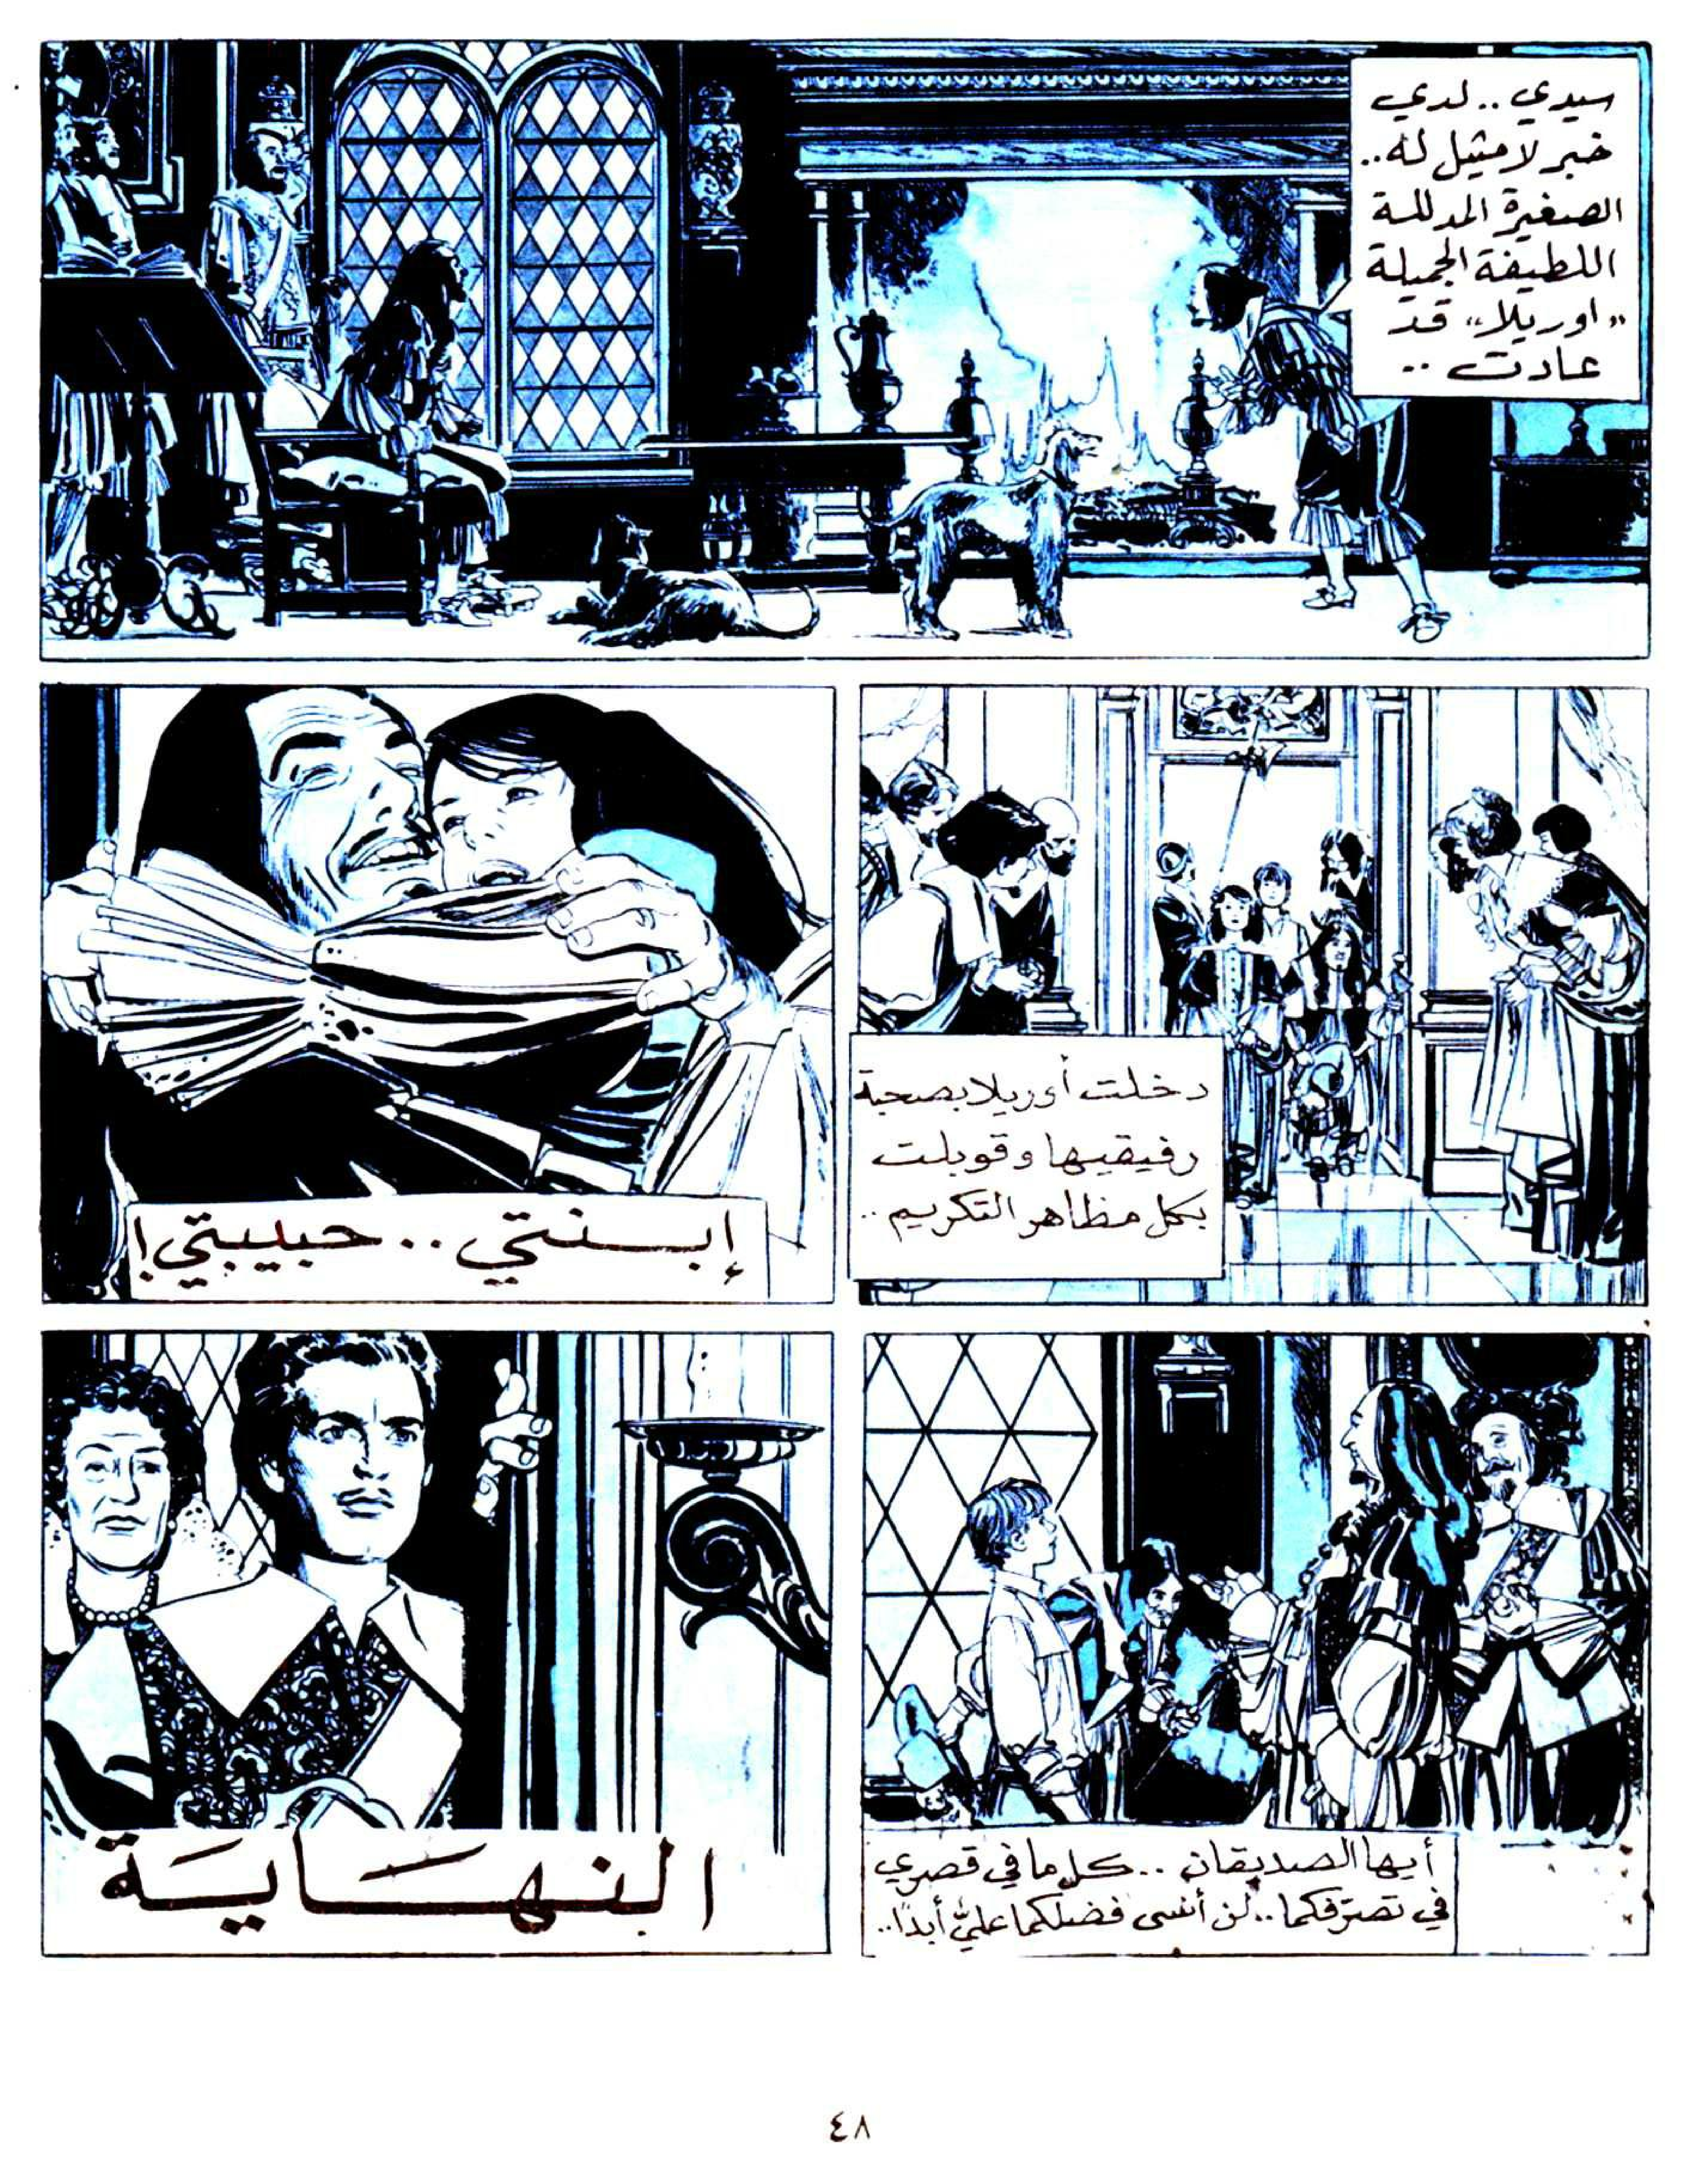 سيدي.. لدي
خبر لا مثيل له..
الصغيرة المدللة
اللطيفة الجميلة
"اوريلا" قد
عادت ..
دخلت أوريلا بصحبة
رفيقيها وقوبلت
بكل مظاهر التكريم ..
إبنتي .. حبيبتي!
أيها الصديقان .. كل ما في قصري
في تصرّفكما.. لن أنسى فضلكما عليّ أبدًا..
النهاية
٤٨